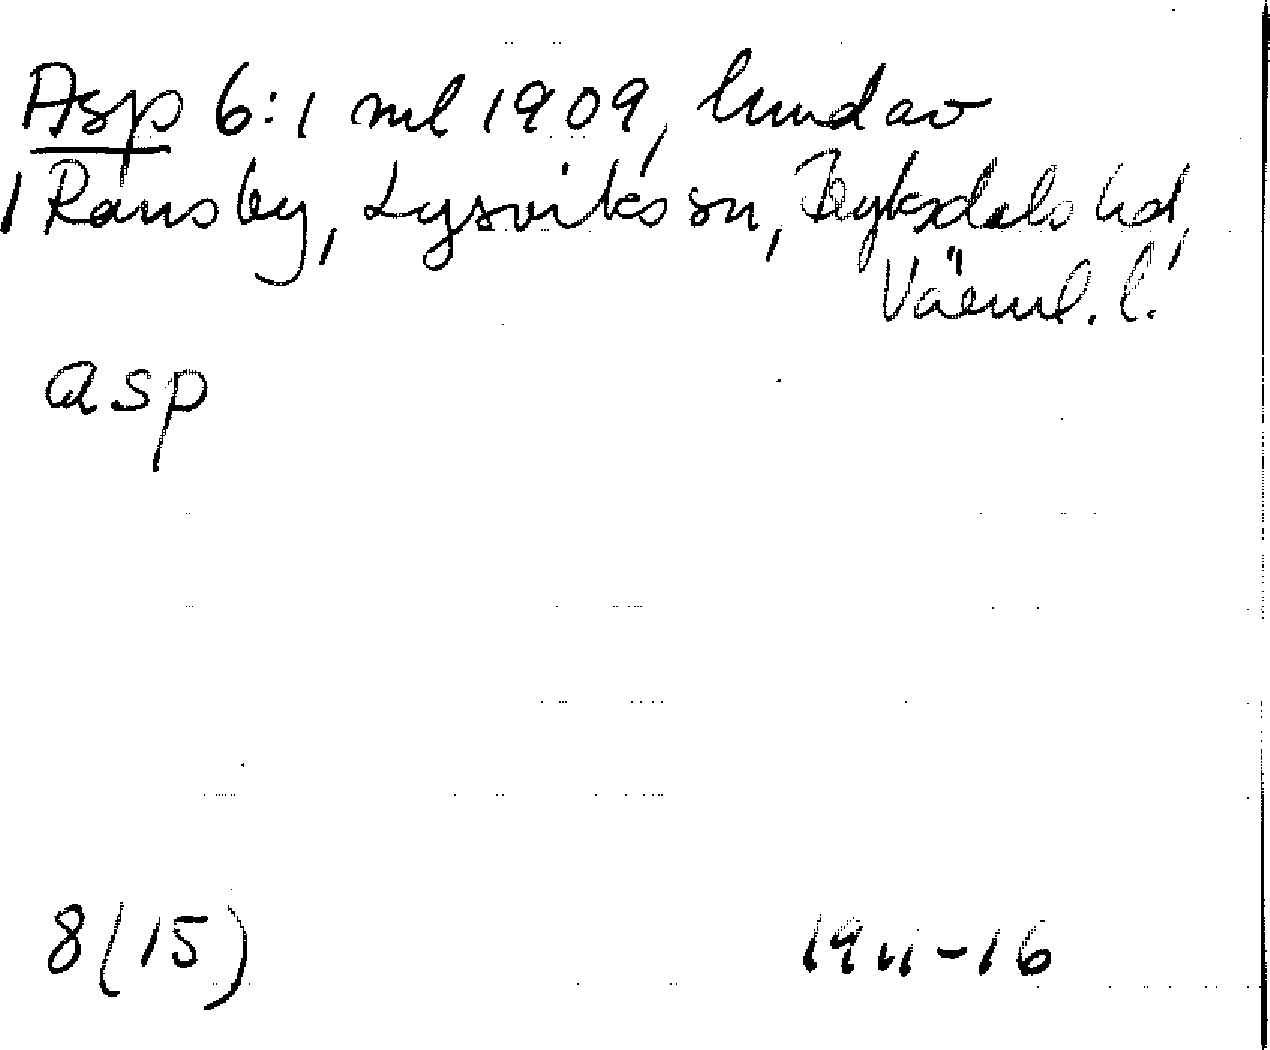 Asp 6:1 ml 1909, av
1 Ransby, Lysviks sn, Fryksdals hd,
Värml. l.
asp
8(15)
1911-16